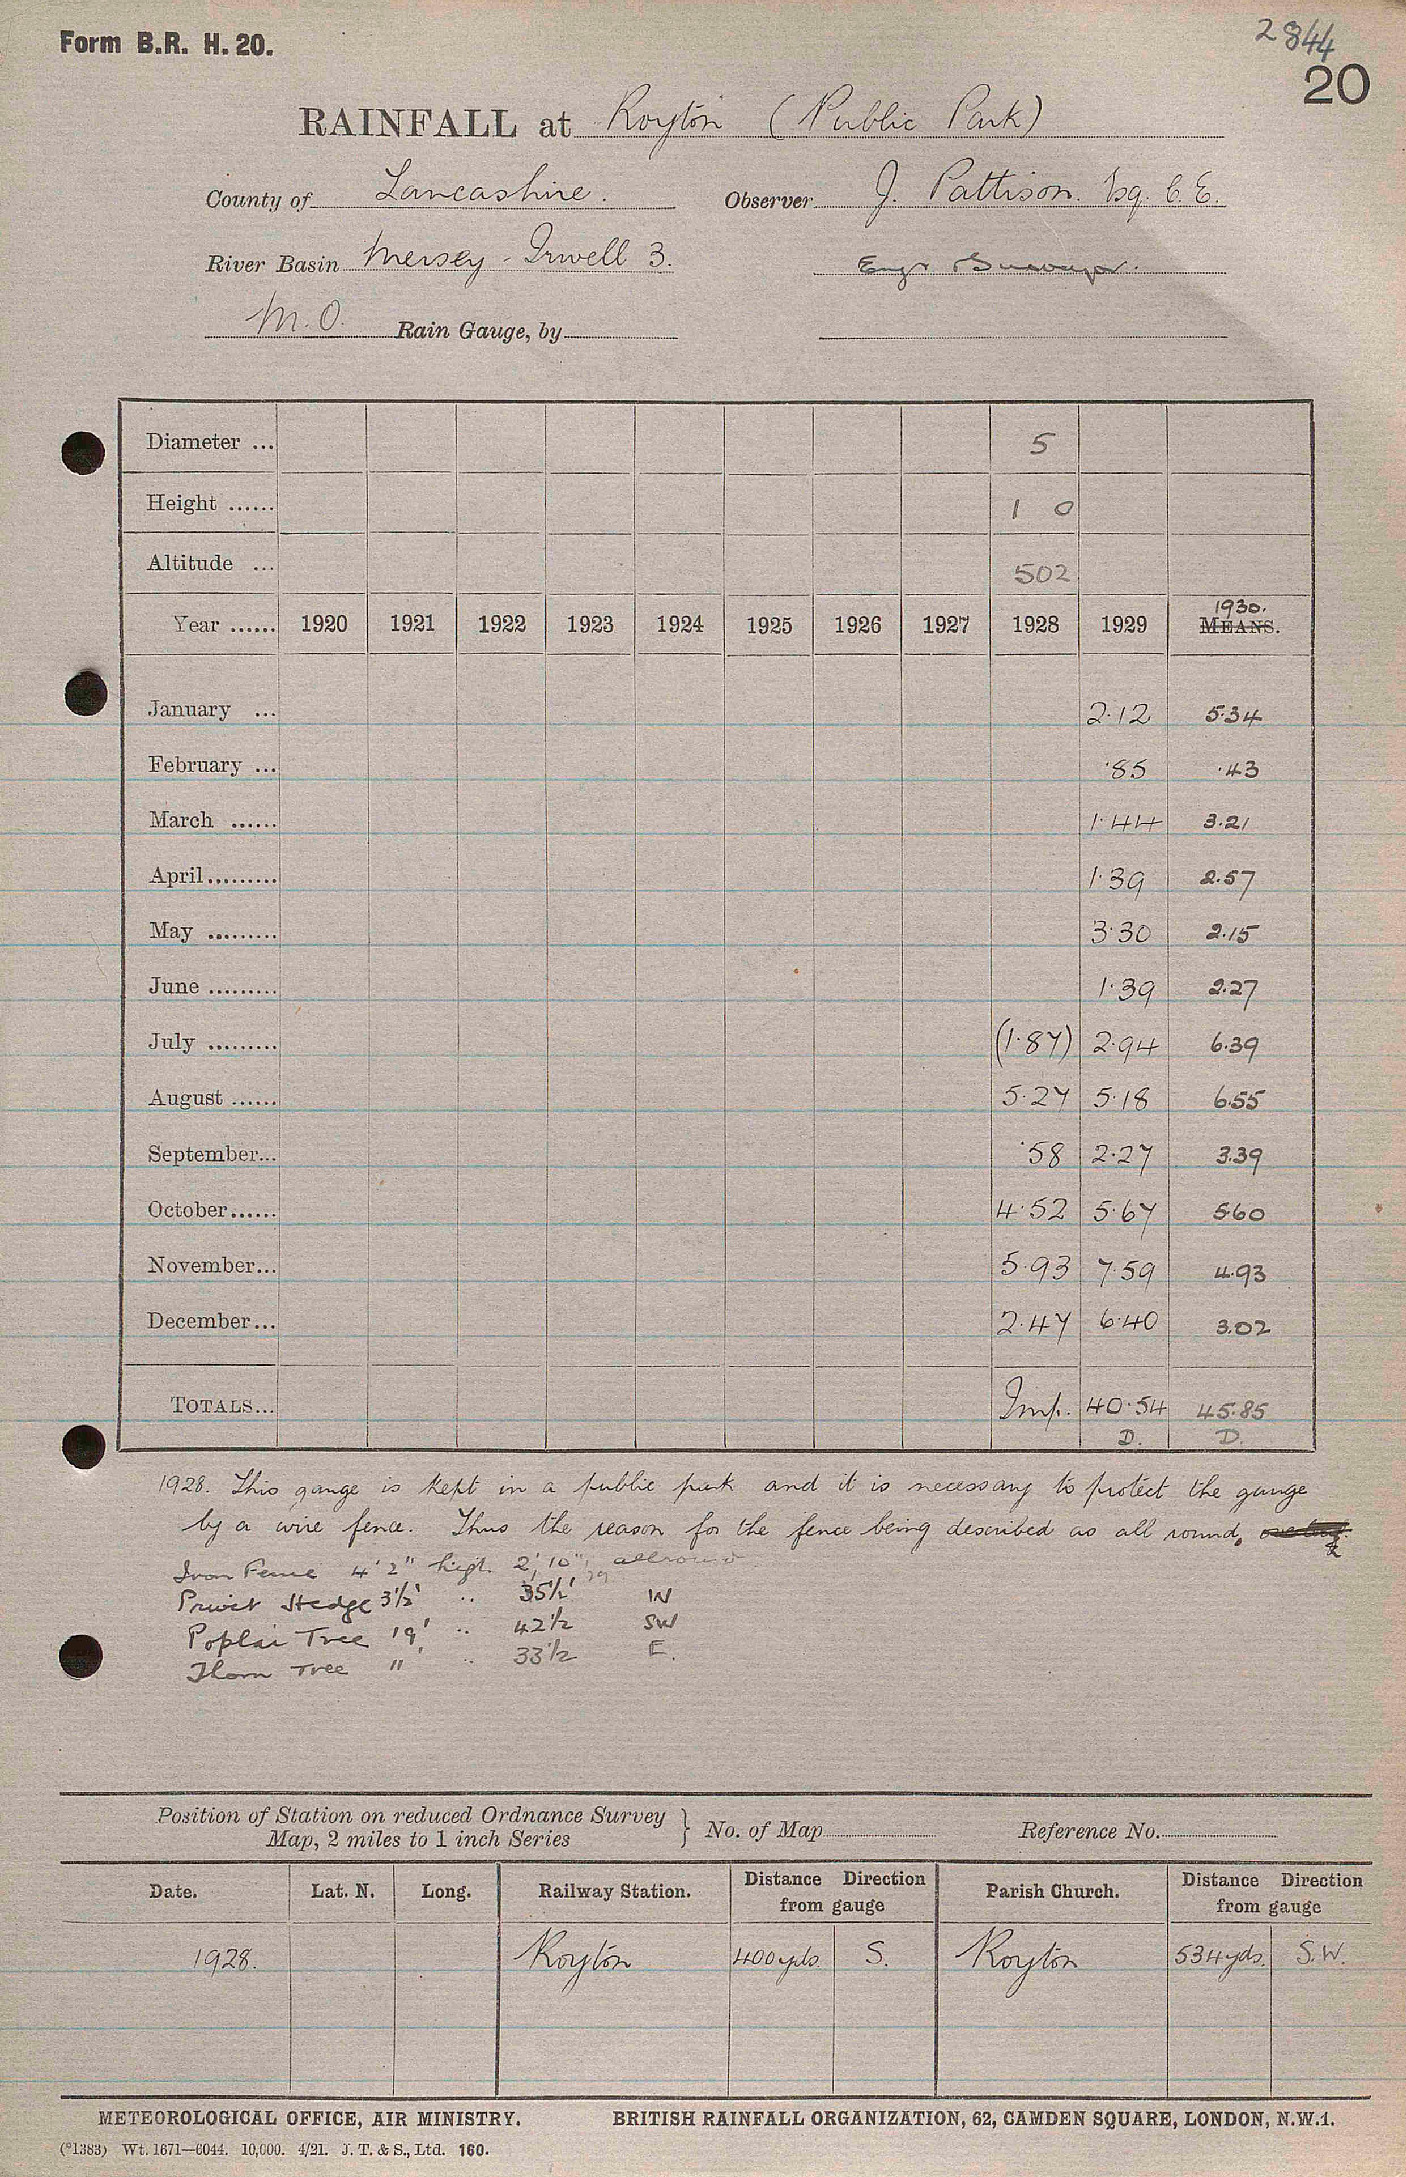 Form B.R. H. 20.
2844
20
RAINFALL at Royton (Public Park)
County of Lancashire. Observer J. Pattison. Esq. C.E.
River Basin Mersey - Irwell 3. Engr & Surveyor.
M.O. Rain Gauge, by
Diameter ... 5
Height ...... 1 0
Altitude ... 502
1930.
Year ...... 1920 1921 1922 1923 1924 1925 1926 1927 1928 1929 MEANS.
January ... 2.12 5.34
February ... .85 .43
March ...... 1.44 3.21
April......... 1.39 2.57
May ......... 3.30 2.15
June ......... 1.39 2.27
July ......... (1.87) 2.94 6.39
August ...... 5.27 5.18 6.55
September... .58 2.27 3.39
October...... 4.52 5.67 5.60
November... 5.93 7.59 4.93
December... 2.47 6.40 3.02
TOTALS... Imp. 40.54 45.85
D. D.
1928. This gauge is kept in a public park and it is necessary to protect the gauge
by a wire fence. Thus the reason for the fence being described as all round.
Iron Fence 4'2" high 2'10" allround
Privet Hedge 3½' .. 35½' N
Poplar Tree 19' .. 42½ SW
Thorn Tree 11' .. 33½ E.
Position of Station on reduced Ordnance Survey
Map, 2 miles to 1 inch Series } No. of Map Reference No.
Date. Lat. N. Long. Railway Station. Distance Direction from gauge Parish Church. Distance Direction from gauge
1928. Royton 400 yds. S. Royton 534 yds. S.W.
METEOROLOGICAL OFFICE, AIR MINISTRY. BRITISH RAINFALL ORGANIZATION, 62, CAMDEN SQUARE, LONDON, N.W.1.
(*1383) Wt. 1671—6044. 10,000. 4/21. J. T. & S., Ltd. 160.